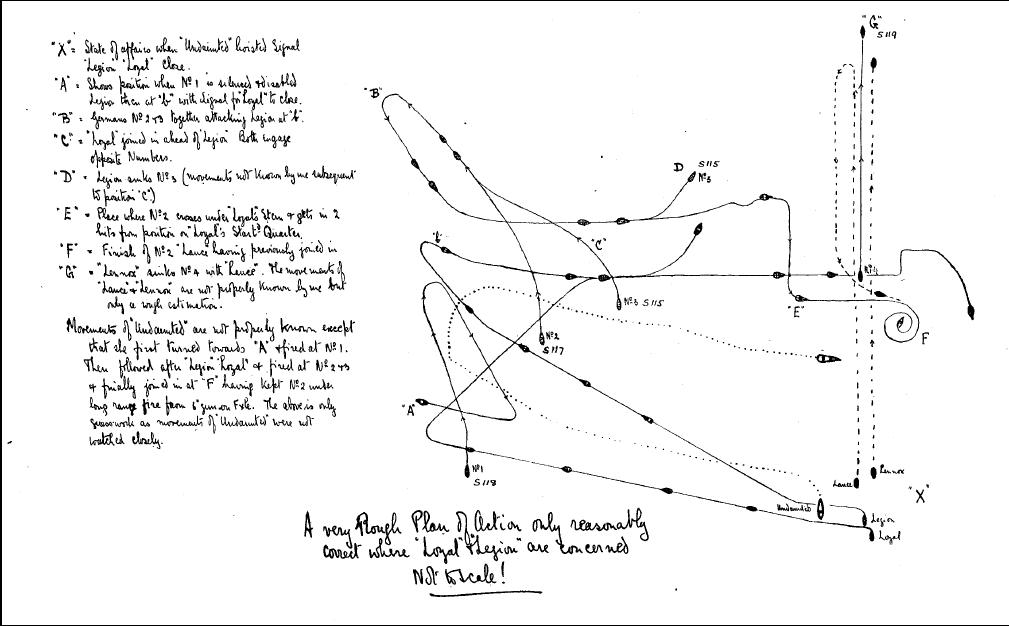 "X" = State of affairs when "Undaunted" hoisted Signal
"Legion" "Loyal" Close.
"A" = Shows position when Nº1 is silenced & disabled
Legion then at "b" with signal for "Loyal" to close.
"B" = Germans Nº 2 & 3 together attacking Legion at "b".
"C" = "Loyal" joined in ahead of "Legion" Both engage
opposite Numbers.
"D" = Legion sinks Nº 3 (movements not known by me subsequent
to position "C".)
"E" = Place where Nº2 crosses under "Loyal's" Stern & gets in 2
hits from position on "Loyal's" Starbd Quarter.
"F" = Finish of Nº2 "Lance" having previously joined in
"G" = "Lennox" sinks Nº4 with "Lance". The movements of
"Lance" & "Lennox" are not properly known by me but
only a rough estimation.
Movements of "Undaunted" are not properly known except
that she first turned towards "A" & fired at Nº1.
Then followed after "Legion" "Loyal" & fired at Nº 2 & 3
& finally joined in at "F" having kept Nº2 under
long range fire from 6" gun on Fxle. The above is only
guesswork as movements of "Undaunted" were not
watched closely.
"G"
S119
"B"
D
S115
Nº3
"b"
"C"
Nº4
Nº3 S115
"E"
F
Nº2
S117
"A"
Nº1
S118
Lance
Lennox
"X"
Undaunted
Legion
Loyal
A very Rough Plan of Action only reasonably
correct where "Loyal" & "Legion" are concerned
Not to scale!